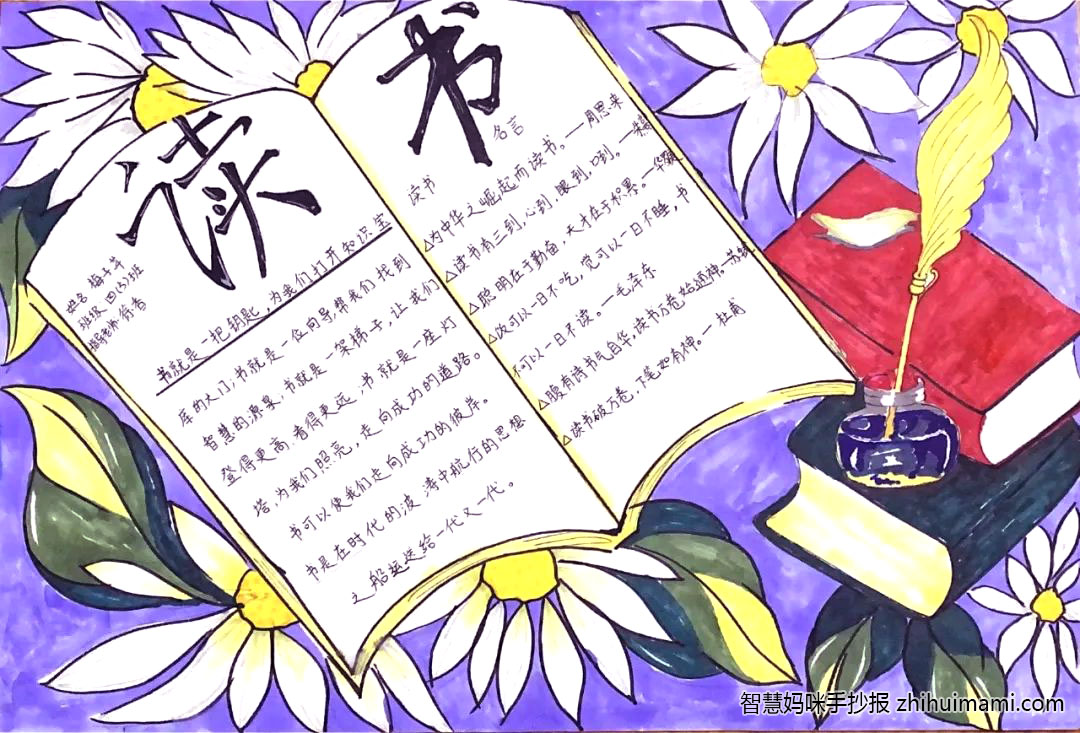 读书
姓名 梅子年
班级 四(3)班
指导老师 徐香
书就是一把钥匙,为我们打开知识宝
库的大门;书就是一位向导帮我们找到
智慧的源泉,书就是一架梯子,让我们
登得更高,看得更远,书就是一座灯
塔,为我们照亮,走向成功的道路。
书可以使我们走向成功的彼岸。
书是在时代的波涛中航行的思想
之船运送给一代又一代。
读书 名言
△为中华之崛起而读书。一周恩来
△读书有三到,心到,眼到,口到。一朱熹
△聪明在于勤奋,天才在于积累。一华罗庚
△饭可以一日不吃,觉可以一日不睡,书
不可以一日不读。一毛泽东
△腹有诗书气自华,读书万卷始通神。苏轼
△读书破万卷,下笔如有神。一杜甫
智慧妈咪手抄报 zhihuimami.com